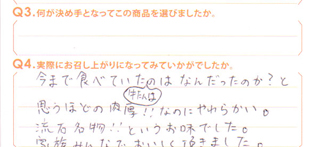 Q3.何が決め手となってこの商品を選びましたか。
Q4.実際にお召し上がりになってみていかがでしたか。
今まで食べていた牛たんはのはなんだったのか？と
思うほどの肉厚!!なのにやわらかい。
流石名物!!というお味でした。
家族みんなでおいしく頂きました。